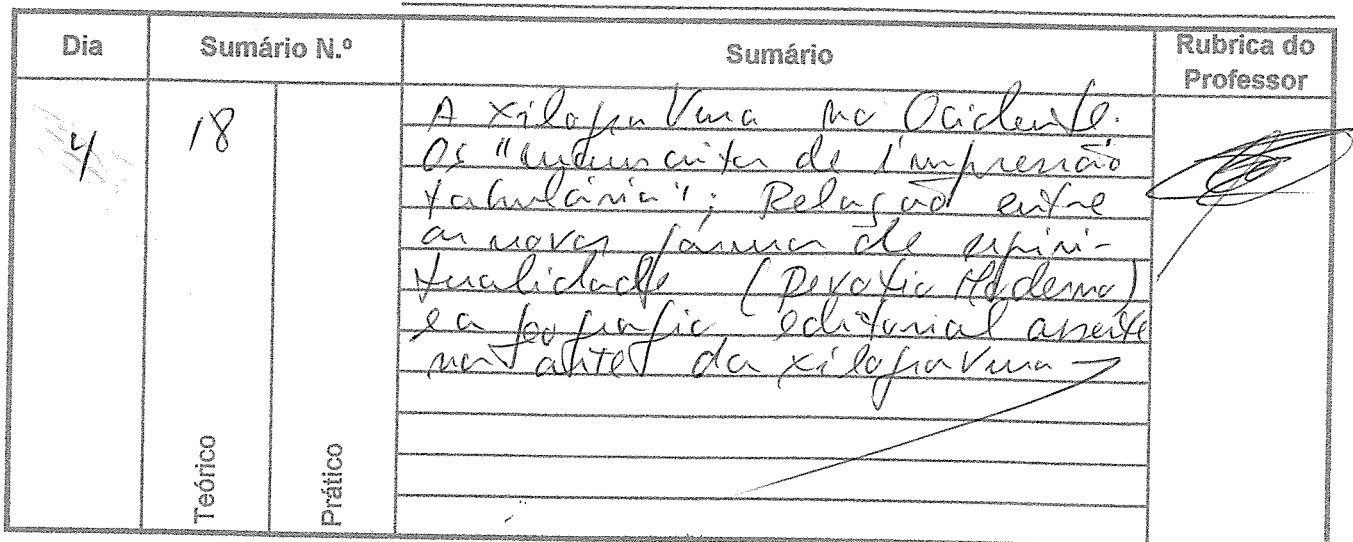 Dia Sumário N.º Sumário Rubrica do Professor
4 18
A xilogravura no Ocidente.
Os "incunábulos de impressão
tabulária"; Relação entre
as novas formas de espiri-
tualidade (Devotio Moderna)
e a geografia editorial assente
nas artes da xilogravura
Teórico Prático